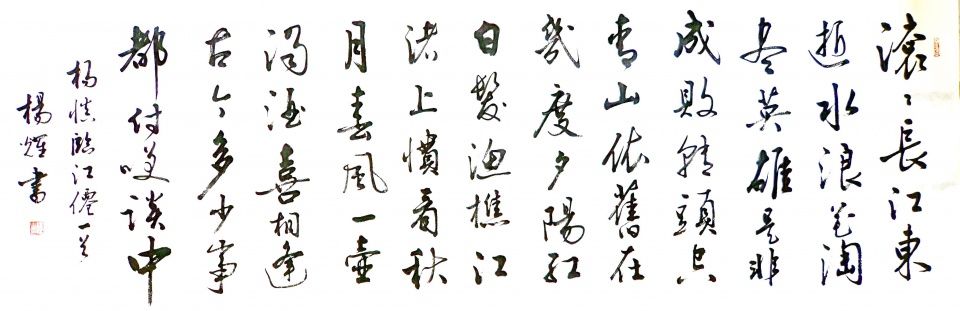 滚〻長江東
逝水浪花淘
尽英雄是非
成敗轉頭空
青山依舊在
幾度夕陽紅
白髮漁樵江
渚上慣看秋
月春風一壺
濁酒喜相逢
古今多少事
都付笑談中
楊慎臨江僊一首
楊 書